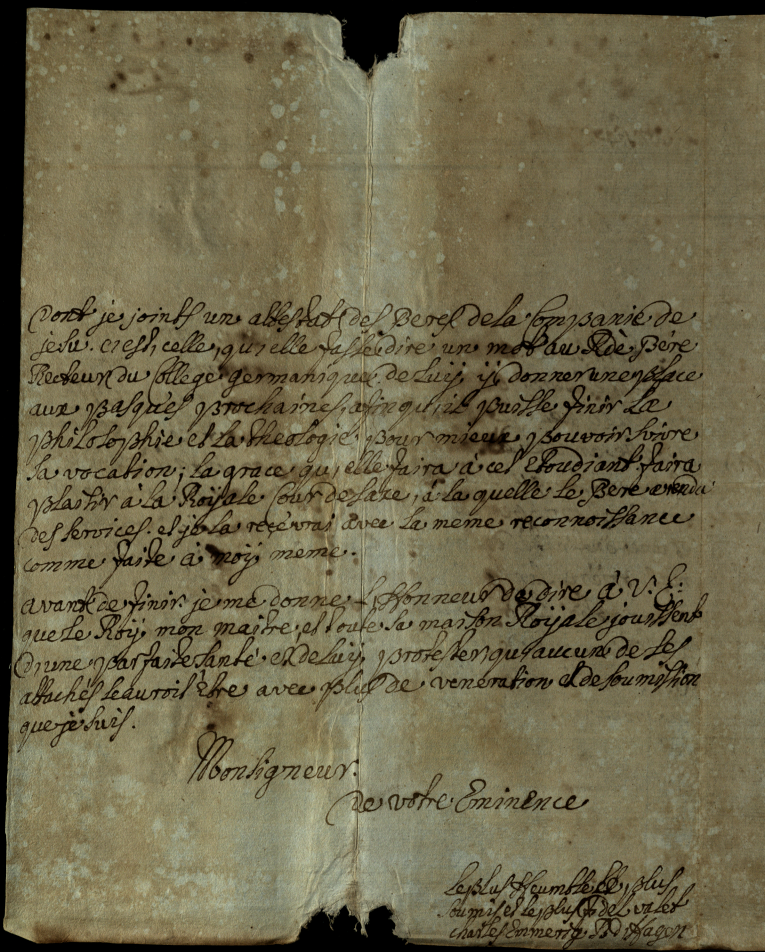 Dont je joints un attestat des Peres de la Companie de
jesu. c'est, celle, qu'elle fasse dire un mot au Rde Pére
Recteur du Collége germanique de luy, y donner une place
aux pasques prochaines, afin qu'il puisse finir la
philosophie et la theologie pour mieux pouvoir suivre
sa vocation; la grace qu'elle faira à cet etoudiant faira
plaisir à la Royale Cour de Saxe, à la quelle le Pere a rendu
des services. et je la recevrai avec la meme reconnoissance
comme faite à moy meme.
avant de finir je me donne L'Honneur de dire à V: E:
que le Roy, mon maitre, et toute sa maison Royale jouissent
d'une parfaite santé et de luy protester, qu'aucun de ses
attachés sçauroit être avec plus de veneration et de soumission
que je suis.
Monsigneur.
de votre Eminence
le plus Heumble, le plus
soumis et le plus fidel valet
charles Emmerig